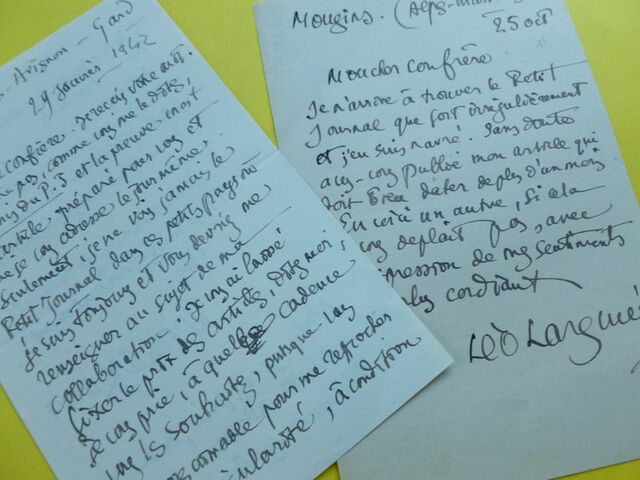 Avignon - Gard
29 Janvier 1942
confrère. Je reçois votre mot.
pas, comme vous me le dites,
du P.J et la preuve en est
article préparé pour vous et
je vous adresse le jour même.
Seulement, je ne vois jamais le
Petit Journal dans ce petit pays où
je suis toujours et vous devriez me
renseigner au sujet de ma
collaboration. Je vous ai laissé
fixer le prix des articles, dites moi,
je vous prie, à quelle cadence
vous les souhaitez, puisque vous
aimable pour me reprocher
, à condition
Mougins. (Alpes-Marit
25 oct
Mon cher confrère
Je n'arrive à trouver le Petit
Journal que fort irrégulièrement
et j'en suis navré. Sans doute
avez-vous publié mon article qui
doit bien dater de plus d'un mois
En voici un autre, si cela
vous déplait pas, avec
expression de mes sentiments
plus cordiaux
Léo Larguier